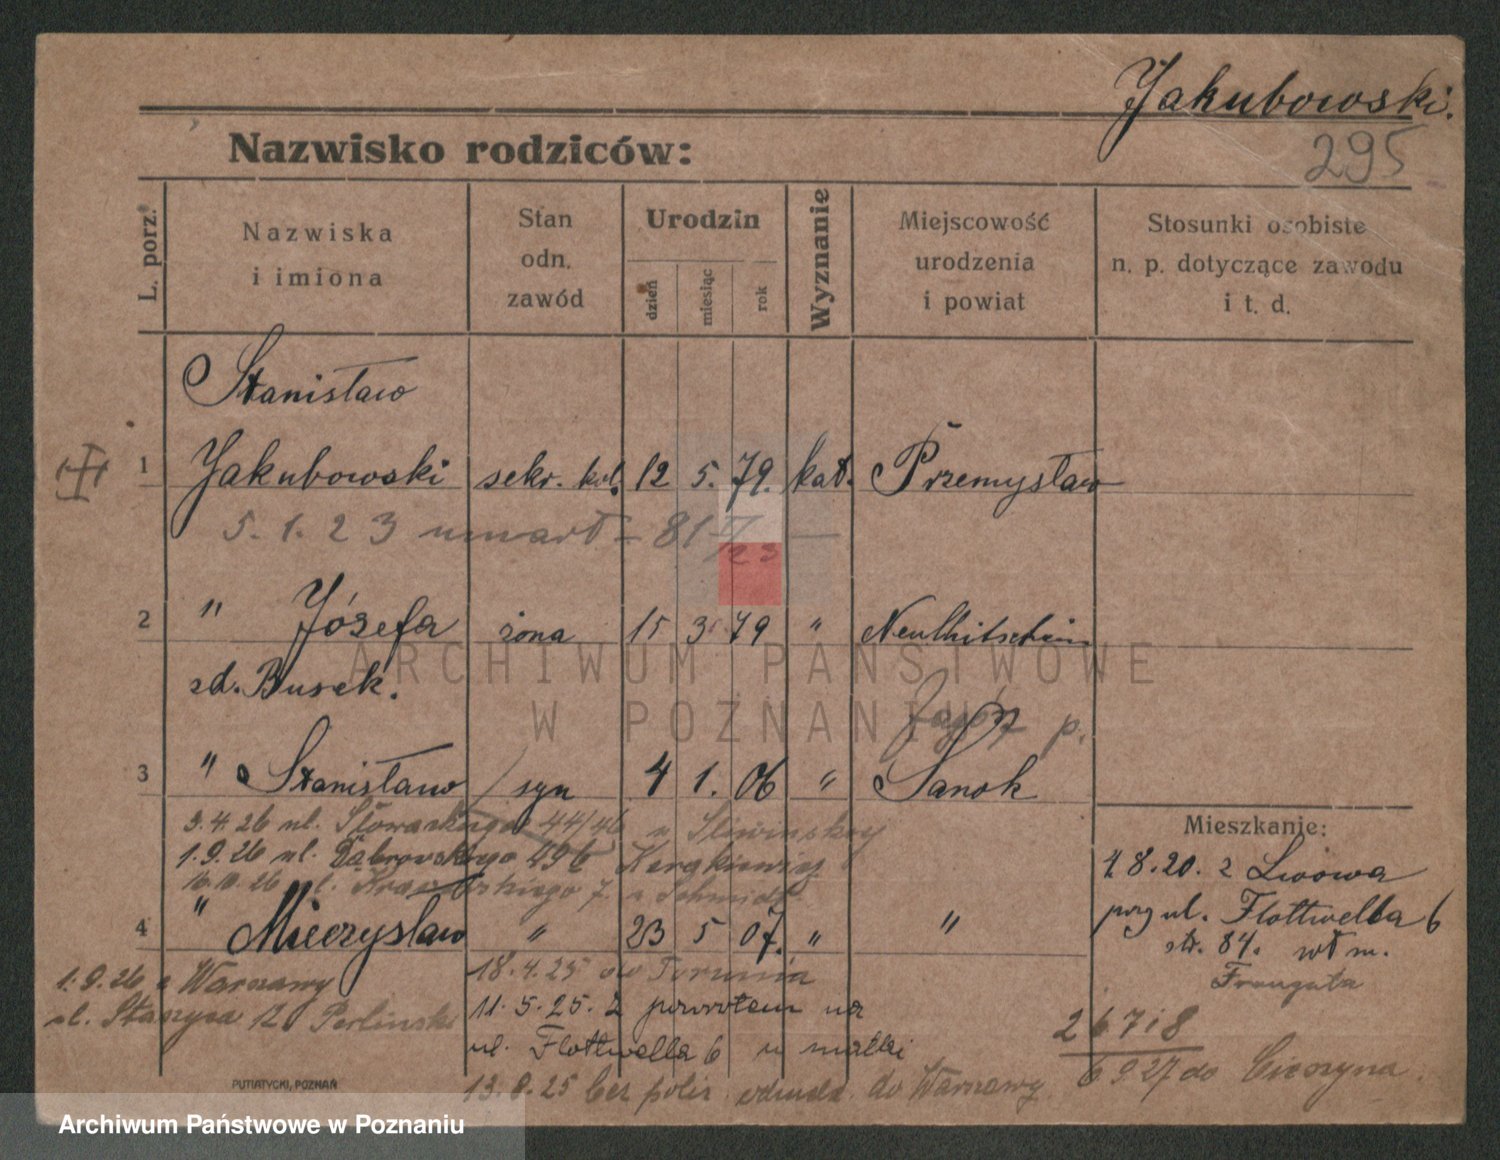 Jakubowski.
Nazwisko rodziców:
295
L. porz.
Nazwiska
i imiona
Stan
odn.
zawód
Urodzin
dzień
miesiąc
rok
Wyznanie
Miejscowość
urodzenia
i powiat
Stosunki osobiste
n. p. dotyczące zawodu
i t. d.
Stanisław
1 Jakubowski sekr. kol. 12 5. 79. kat. Przemysław
5. 1. 2 3 umarł = 81
2 " Józefa żona 15 3 79 "
zd. Busek.
ARCHIWUM PAŃSTWOWE
W POZNANIU
p.
3 " Stanisław syn 4 1. 06 " Sanok
3.4.26 ul. Słowackiego 44/46 u Śliwińskiej
1.9.26 ul. Dąbrowskiego 49
16.10.26 ul. Kraszewskiego 7. u Schmidt
4 " Mieczysław " 23 5 07. " "
1.9.26 z Warszawy
ul. Staszyca 12 Perlinski
18.4.25 do Torunia
11.5.25. z powrotem na
ul. Flottwella 6 u matki
13.8.25 bez polic. odmeld. do Warszawy
Mieszkanie:
1.8.20. z Lwowa
przy ul. Flottwella 6
str. 84. wł m.
26718
6 9 27 do Cieszyna.
PUTIATYCKI, POZNAŃ
Archiwum Państwowe w Poznaniu